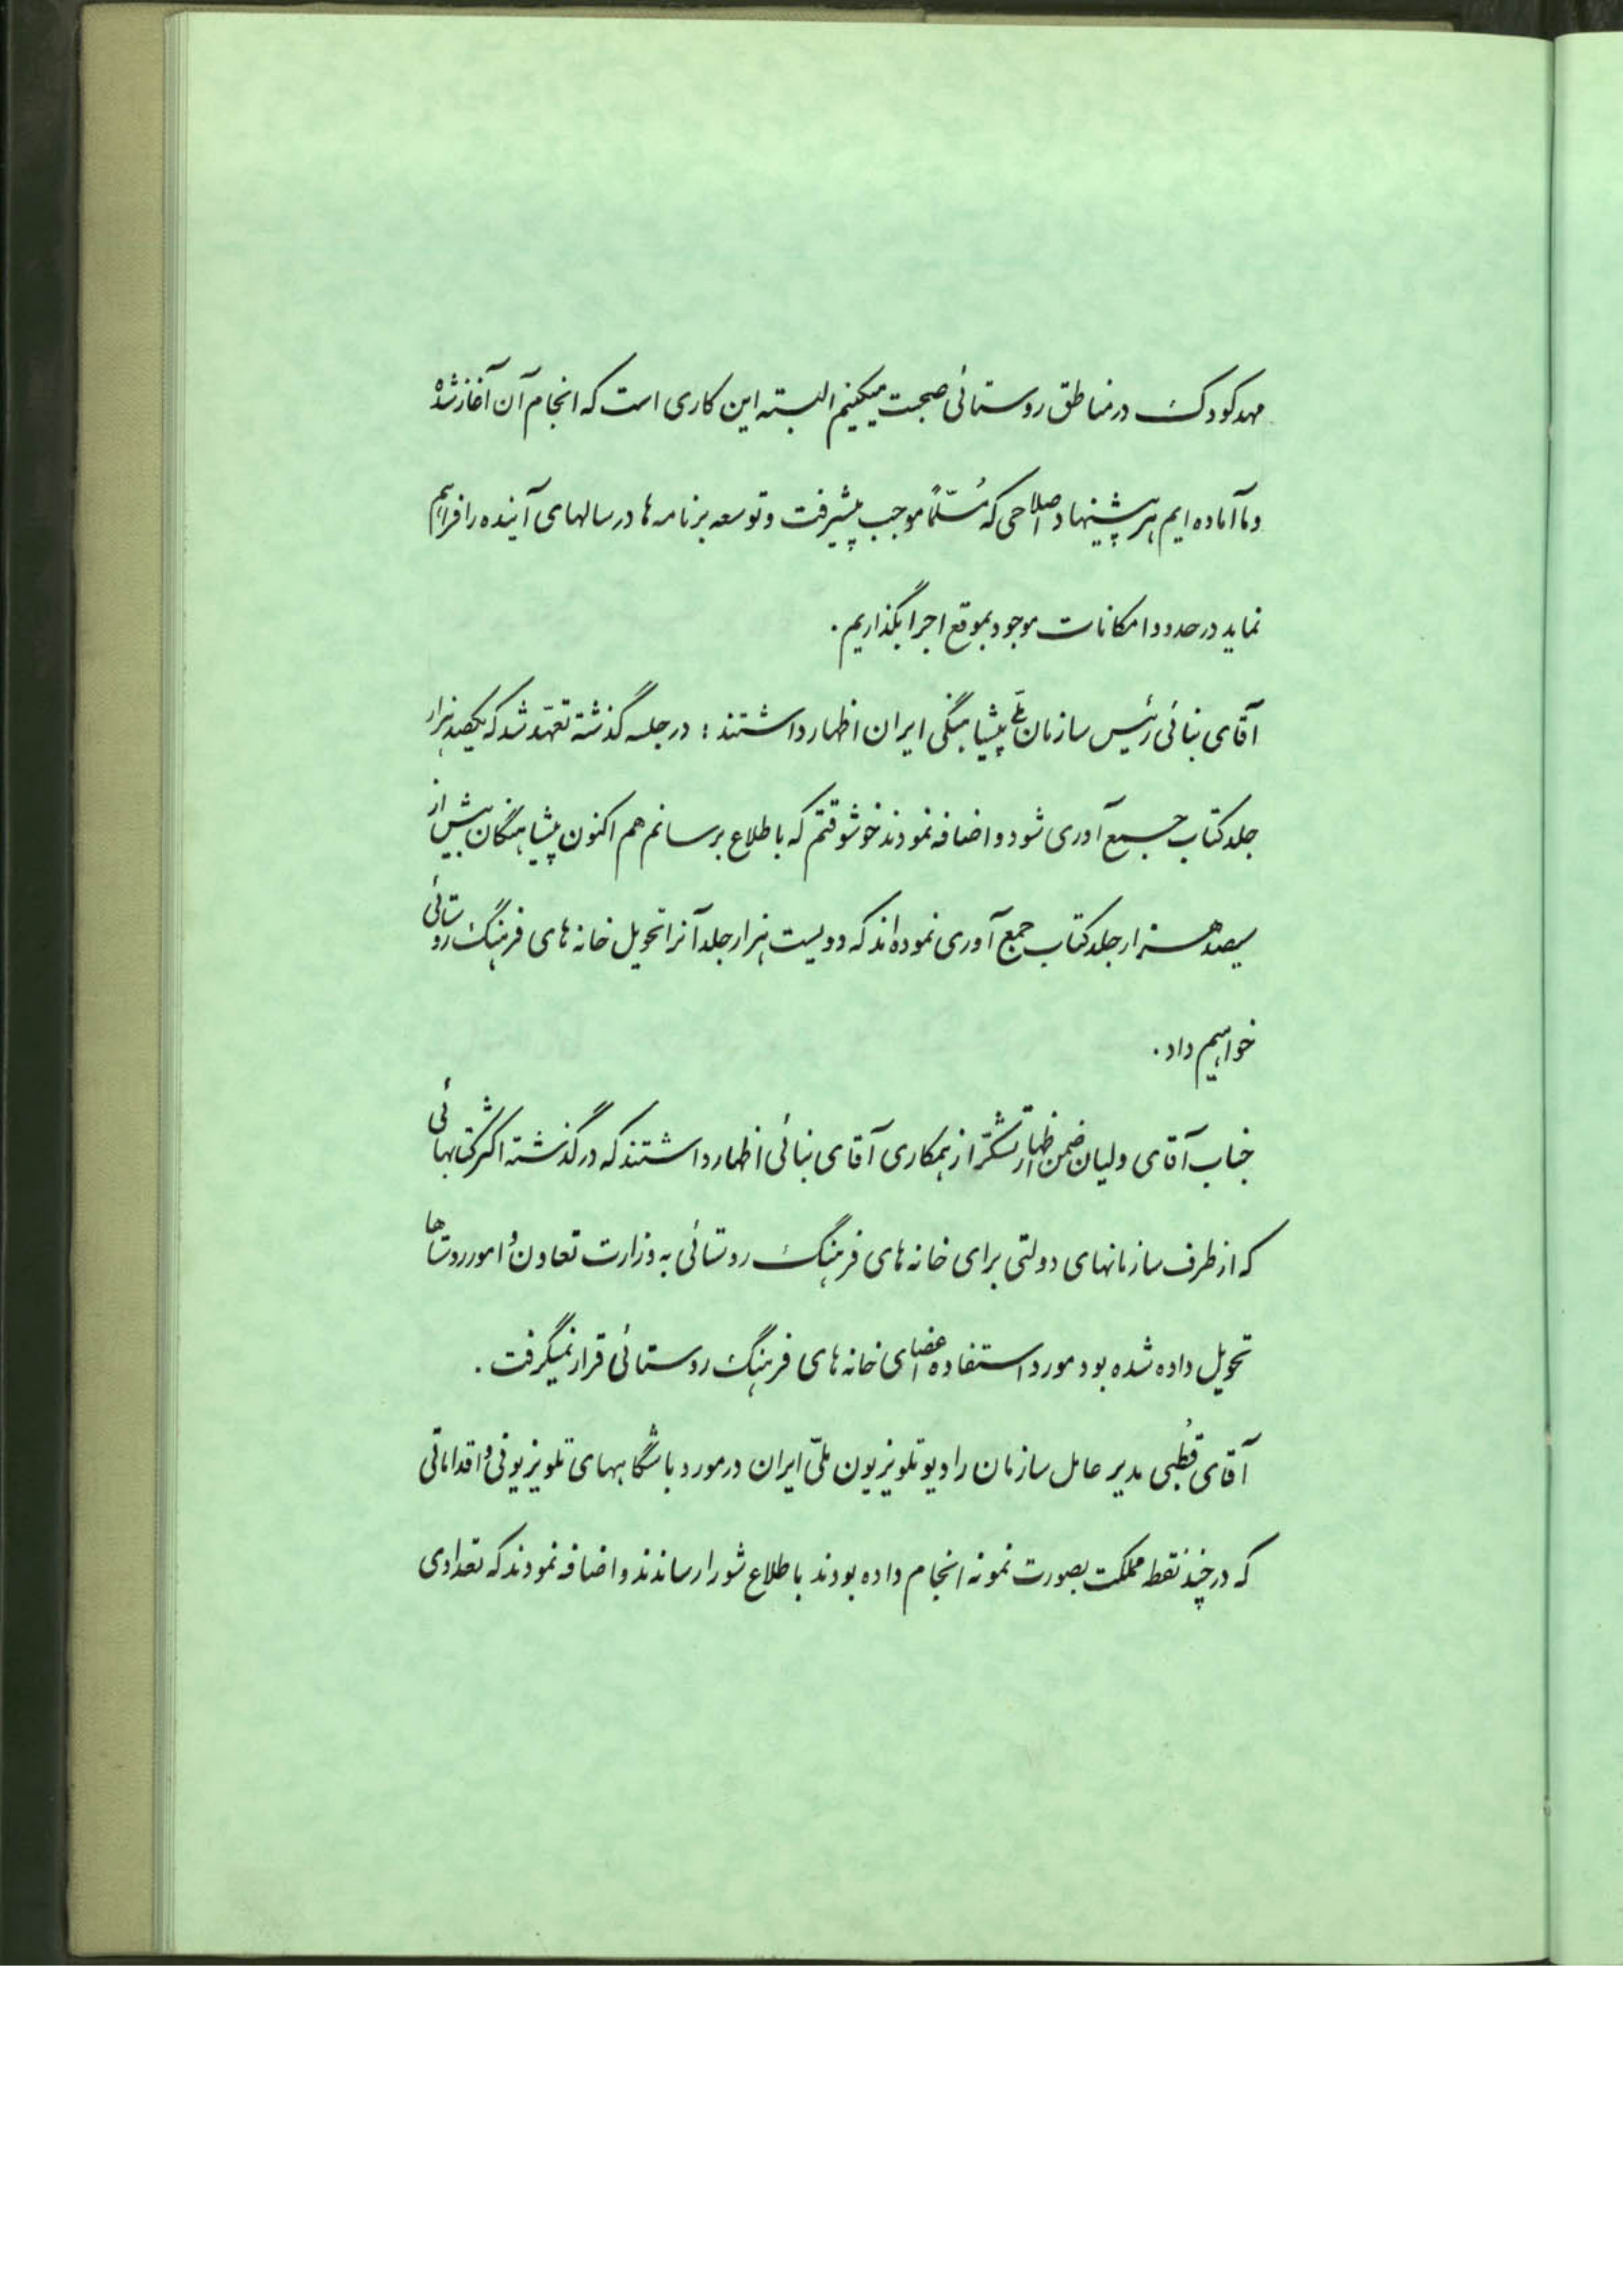 مهد کودک در مناطق روستائی صحبت میکنیم البته این کاری است که انجام آن آغاز شده
و ما آماده ایم هر پیشنهاد اصلاحی که مُسلّماً موجب پیشرفت و توسعه برنامه ها در سالهای آینده را فراهم
نماید در حدود امکانات موجود بموقع اجرا بگذاریم .
آقای بنائی رئیس سازمان ملّی پیشاهنگی ایران اظهار داشتند : در جلسه گذشته تعهّد شد که یکصد هزار
جلد کتاب جمع آوری شود و اضافه نمودند خوشوقتم که باطلاع برسانم هم اکنون پیشاهنگان بیش از
سیصد هزار جلد کتاب جمع آوری نموده اند که دویست هزار جلد آنرا تحویل خانه های فرهنگ روستائی
خواهیم داد .
جناب آقای ولیان ضمن اظهار تشکّر از همکاری آقای بنائی اظهار داشتند که در گذشته اکثر کتابهائی
که از طرف سازمانهای دولتی برای خانه های فرهنگ روستائی به وزارت تعاون و امور روستاها
تحویل داده شده بود مورد استفاده اعضای خانه های فرهنگ روستائی قرار نمیگرفت .
آقای قُطبی مدیر عامل سازمان رادیو تلویزیون ملّی ایران در مورد باشگاههای تلویزیونی و اقداماتی
که در چند نقطه مملکت بصورت نمونه انجام داده بودند باطلاع شورا رساندند و اضافه نمودند که تعدادی